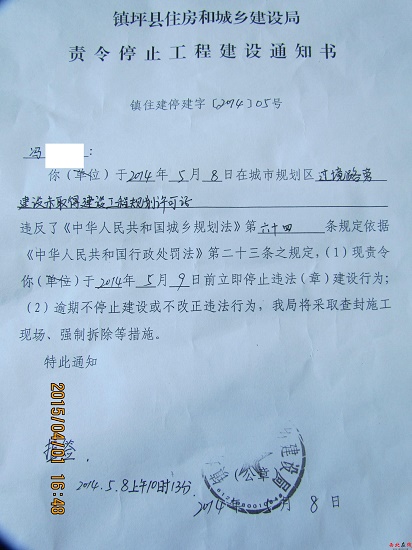 镇坪县住房和城乡建设局
责令停止工程建设通知书
镇住建停建字〔2014〕05号
冯 :
你(单位)于2014年5月8日在城市规划区过境路旁
建设未取得建设工程规划许可证
违反了《中华人民共和国城乡规划法》第六十四条规定依据
《中华人民共和国行政处罚法》第二十三条之规定,(1)现责令
你(单位)于2014年5月9日前立即停止违法(章)建设行为;
(2)逾期不停止建设或不改正违法行为,我局将采取查封施工
现场、强制拆除等措施。
特此通知
拒签
2014.5.8上午10时13分
(公章)
建设局
2014年5月8日
2015/04/01 16:48